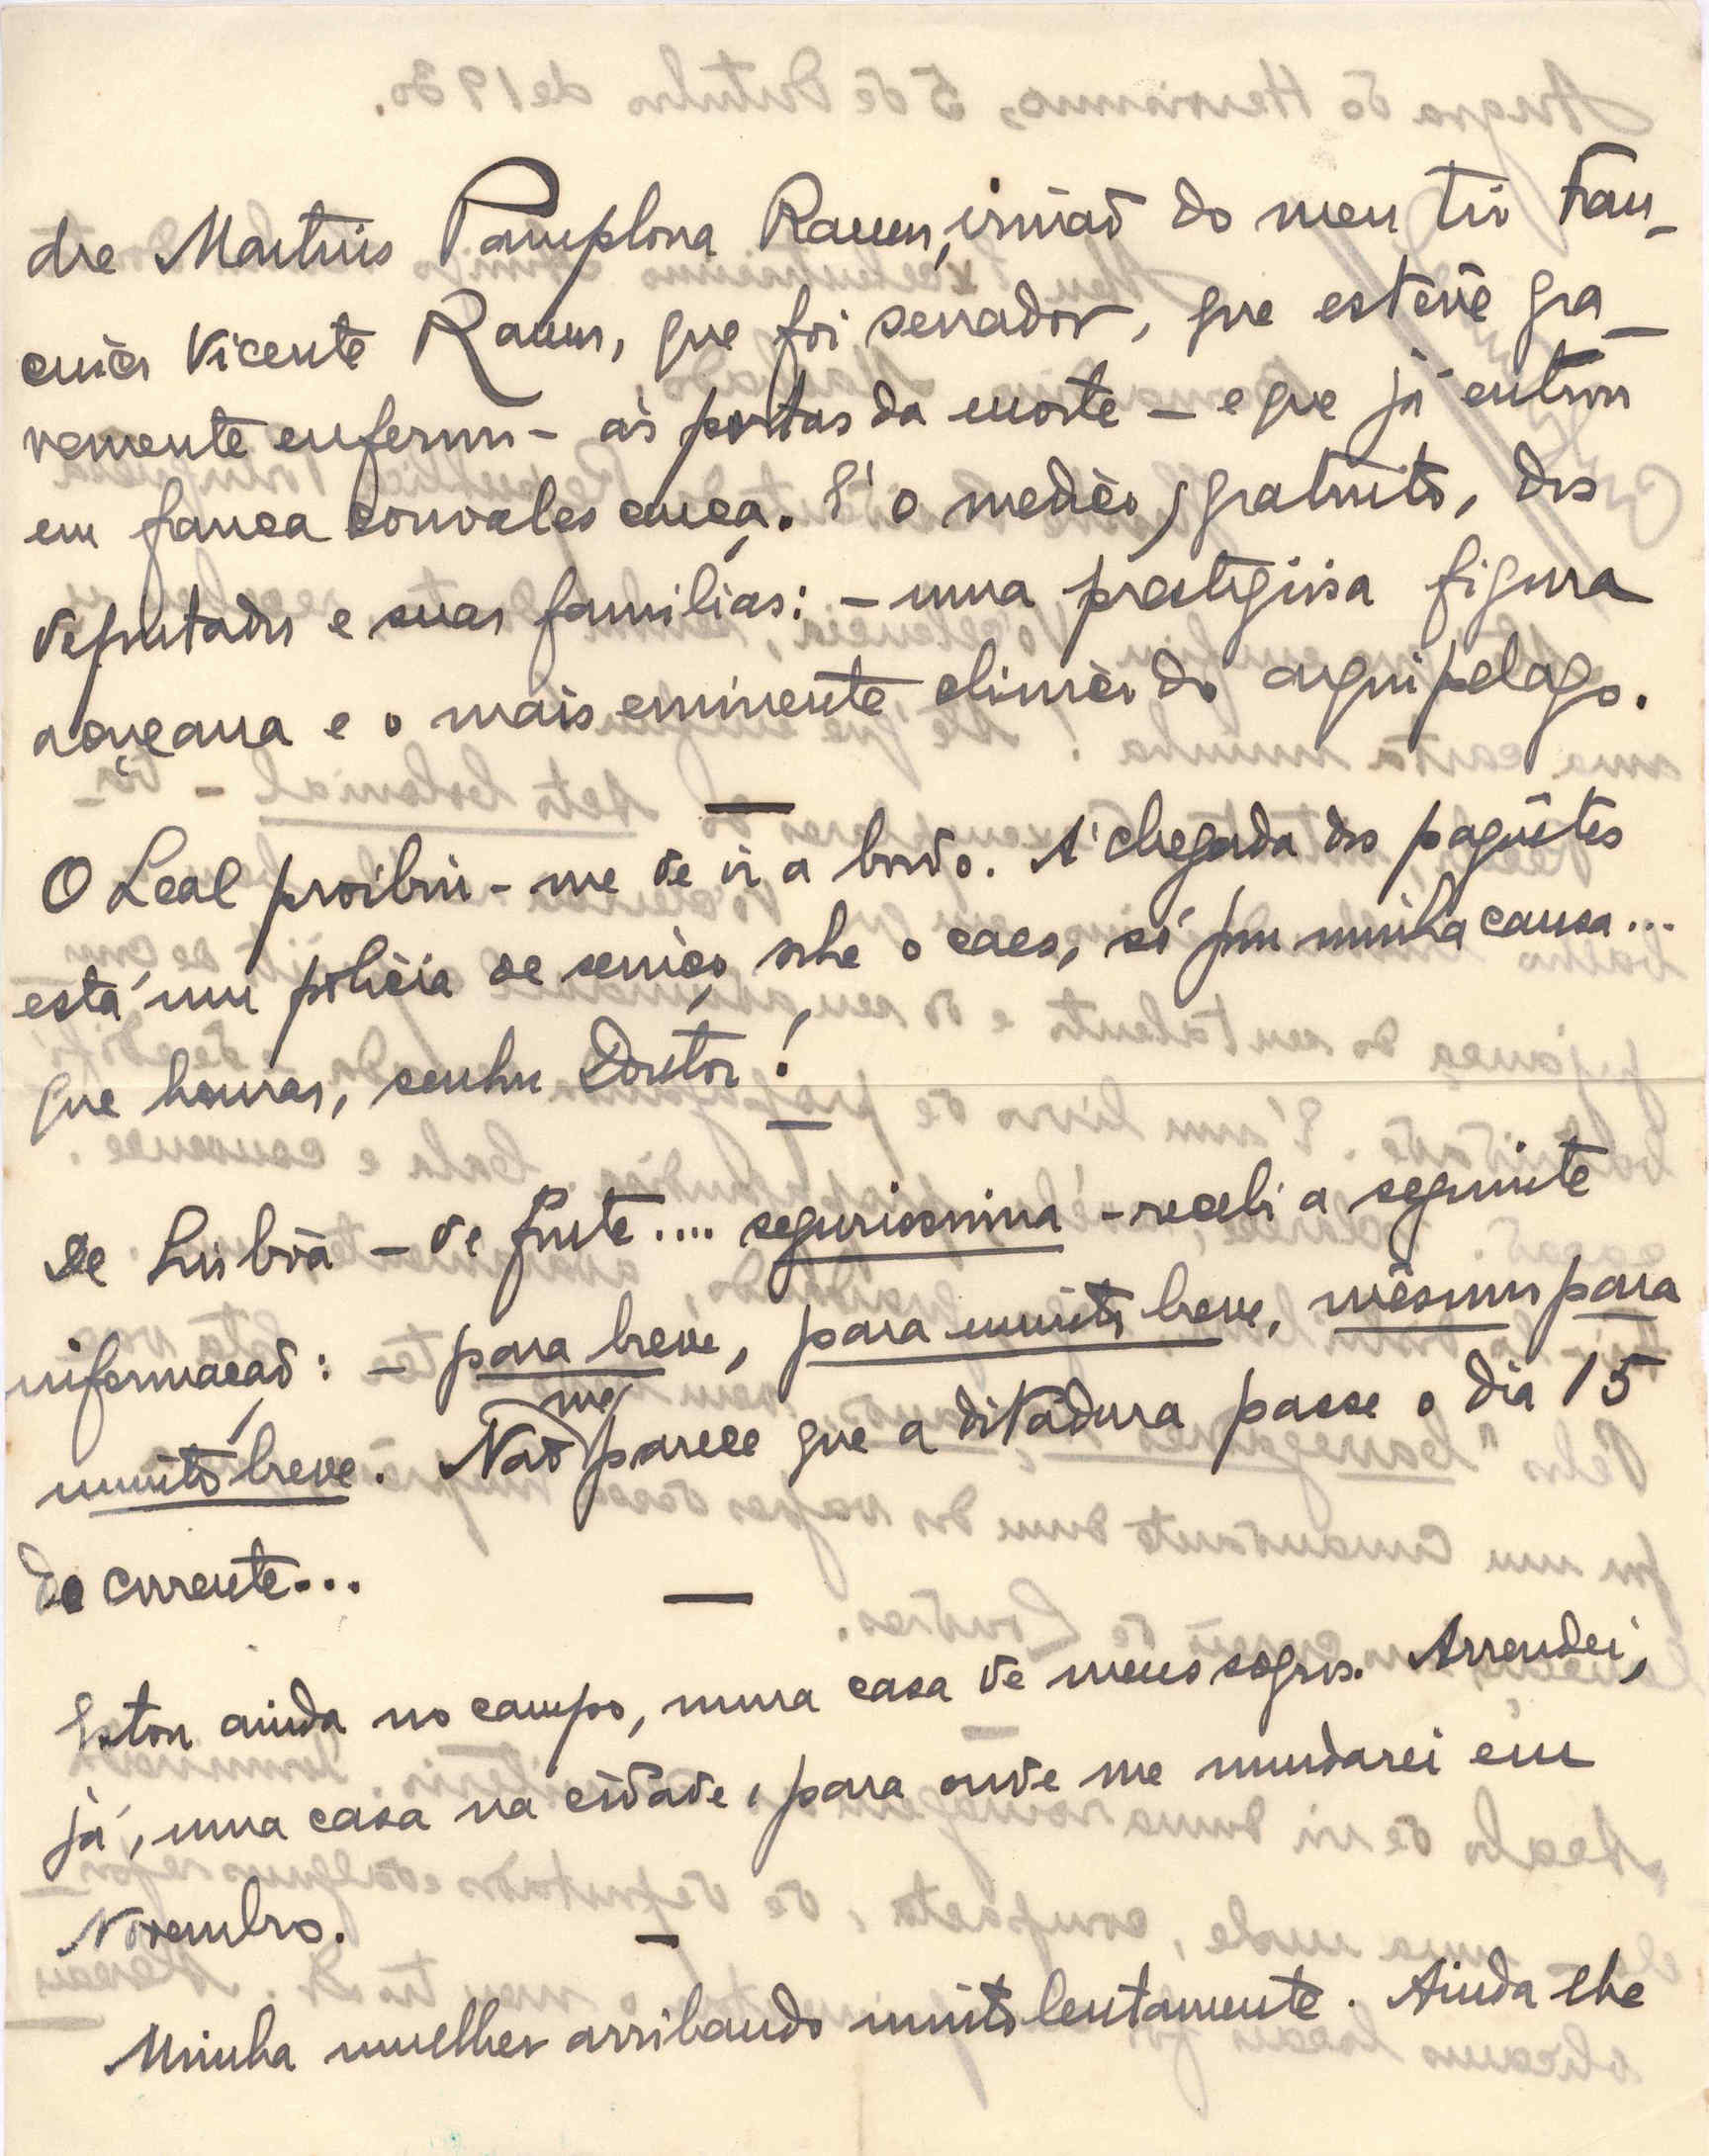 dre Martins Pamplona Ramos, irmaõ do meu tio Fran-
cisco Vicente Ramos, que foi senador, que estêve gra-
vemente enfermo - às portas da morte - e que já entrou
em franca convalescença. É o medico, gratuito, dos
deputados e suas familias: - uma prestigiosa figura
açoreana e o mais eminente clinico do arquipelago.
—
O Leal proibiu-me de ir a bordo. Á chegada dos paquêtes
está um policia de serviço sobre o caes, só por minha causa...
Que honras, senhor Doutor!
—
De Lisbôa - de fonte.... segurissima - recebi a seguinte
informaçaõ: - para breve, para muito breve, mêsmo para
muito breve. Naõ me parece que a ditadura passe o dia 15
do corrente...
—
Estou ainda no campo, numa casa de meus sogros. Arrendei,
já, uma casa na cidade, para onde me mudarei em
Novembro.
—
Minha mulher arribando muito lentamente. Ainda lhe